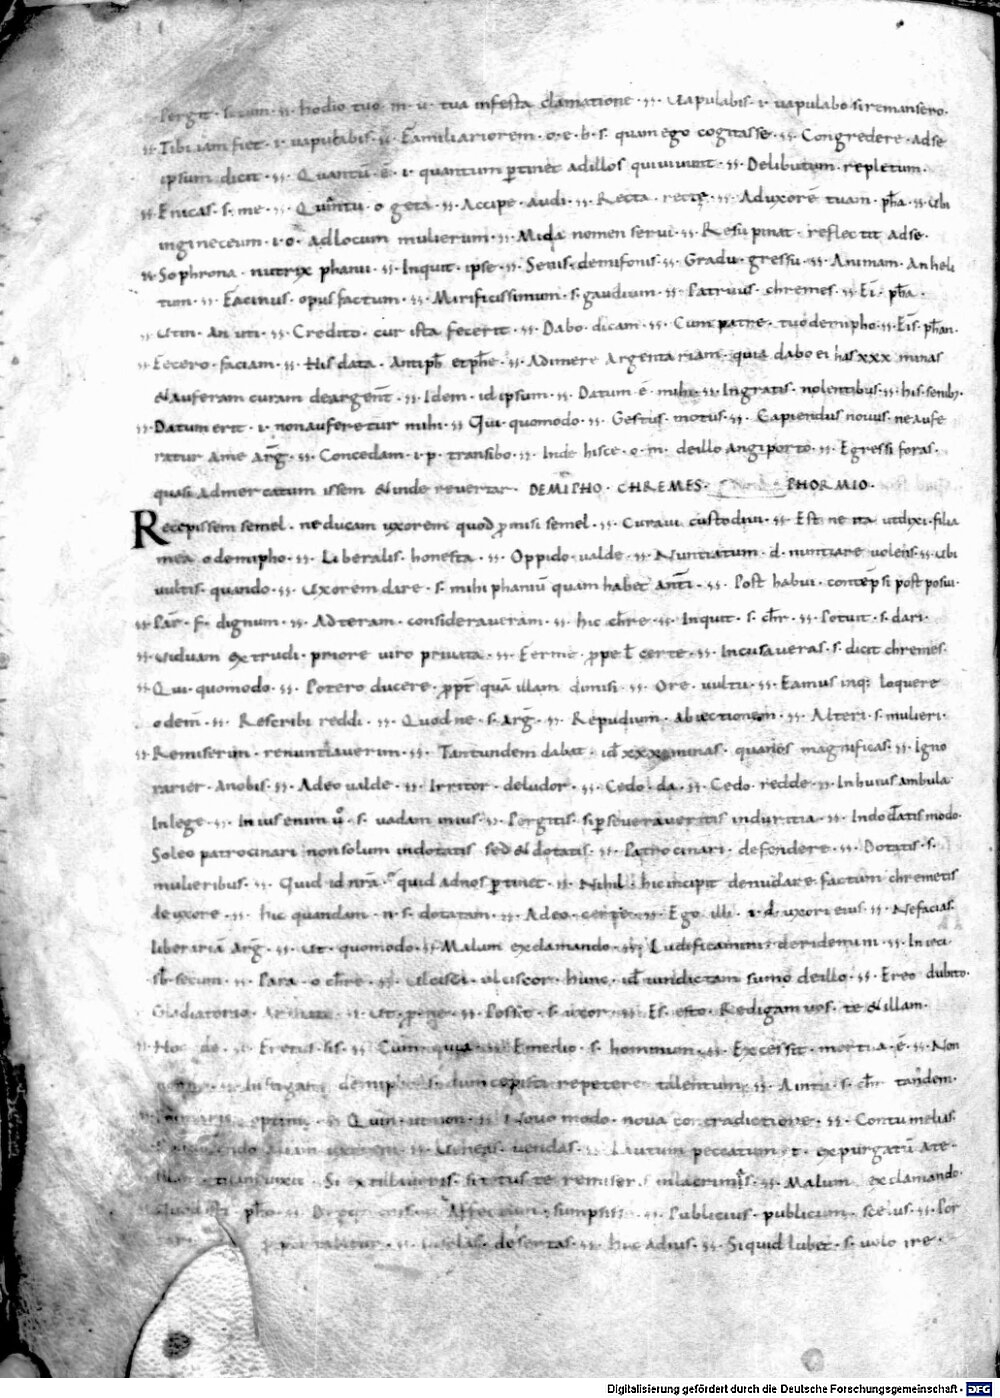 Pergit · s · tum ·:· hodio tuo · m · u · tua infesta clamatione ·:· Uapulabis · i · uapulabo si remansero ·
·:· Tibi iam fiet · i · uapulabis ·:· Familiariorem · o · e · b · s · quam ego cogitasse ·:· Congredere · ad se
ipsum dicit ·:· Quantū · ē · i · quantum ptinet ad illos qui uiuunt ·:· Delibutum · repletum ·
·:· Enicas · s · me ·:· Quin tu · o geta ·:· Accipe · audi ·:· Recta · recte ·:· Ad uxorē tuam · pha ·:· Ubi
in gineceum · i · o · ad locum mulierum ·:· Mida nomen serui ·:· Resupinat · reflectit ad se ·
·:· Sophrona · nutrix phanii ·:· Inquit · ipse ·:· Senis · demifonis ·:· Gradu · gressu ·:· Animam · anheli
tum ·:· Facinus · opus factum ·:· Mirificissimum · s · gaudium ·:· Patruus · chremes ·:· Ei · pha ·
Utin · an uti ·:· Credito · cur ista fecerit ·:· Dabo · dicam ·:· Cum patre · tuo demipho ·:· Eis · phan ·
·:· Fecero · faciam ·:· His data · Antiph et phe ·:· Adimere argentariam · quia dabo ei has xxx minas
& auferam curam de argent ·:· Idem · id ipsum ·:· Datum · ē · mihi ·:· Ingratis · nolentibus ·:· his senib;
·:· Datum erit · i · non auferetur mihi ·:· Qui · quomodo ·:· Gestus · motus ·:· Capiendus nouus · ne aufe
ratur a me arg ·:· Concedam · i · p · transibo ·:· Inde hisce · o · m · de illo angiporto ·:· Egressi foras ·
quasi ad mercatum issem & inde reuertar · DEMIPHO · CHREMES · PHORMIO ·
Recepissem semel · ne ducam uxorem quod pmisi semel ·:· Curaui custodiui ·:· Est ne ita ut dixi · filia
mea o demipho ·:· Liberalis · honesta ·:· Oppido · ualde ·:· Nuntiatum · d · nuntiare uolens ·:· Ubi
uultis · quando ·:· Uxorem dare · s · mihi phaniū quam habet anti ·:· Post habui · contepsi post posui ·
·:· Par · f · dignum ·:· Ad teram · consideraueram ·:· hic chre ·:· Inquit · s · chr ·:· Potuit · s · dari ·
·:· Uiduam extrudi · priore uiro priuata ·:· Ferme · ppe t certe ·:· Incusaueras · s · dicit chremes ·
·:· Qui · quomodo ·:· Potero ducere · ppt quā illam dimisi ·:· Ore · uultu ·:· Eamus inq; loquere
o dem ·:· Rescribi reddi ·:· Quod ne · s · arg ·:· Repudium · abiectionem ·:· Alteri · s · mulieri ·
·:· Remiserim · renuntiauerim ·:· Tantundem dabat · id xxx minas · quanes magnificas ·:· Igno
rarier · a nobis ·:· Adeo ualde ·:· Irritor · deludor ·:· Cedo · da ·:· Cedo · redde ·:· In huius ambula
In lege ·:· In ius enim uo · s · uadam inius ·:· Pergitis · si pseueraueritis in duritia ·:· Indotatis modo ·
Soleo patrocinari non solum indotatis sed & dotatis ·:· Patrocinari · defendere ·:· Dotatis · s ·
mulieribus ·:· Quid id nra · quid ad nos ptinet ·:· Nihil · hic incipit denudare factum chremetis
de uxore ·:· hic quandam · n · s · dotatam ·:· Adeo · ·:· Ego illi · i · d · uxori eius ·:· Nefacias ·
liberariā arg ·:· Ut · quomodo ·:· Malum exclamando ·:· Ludificamini · deridemini ·:·
· secum ·:· Para · o chre ·:· Ulcisci · ulciscor · hunc · id uindictam sumo de illo ·:· Ereo dubito ·
Gladiatorio · ·:· Ut · ·:· Possit · s · uxor ·:· Es · esto · Redigam uos · te & illam ·
·:· Hoc de · ·:· Fretus · sis ·:· Cum · quia ·:· E medio · s · hominum ·:· Excessit · mortua · ē ·:· Non
demipho · s · dum cepista repetere talentum ·:· Aintu · s · chr tandem ·
optimis ·:· Quin · ut non ·:· Nouo modo · noua contradictione ·:· Contumelias
aliam uxorem ·:· Ueneas · uendas ·:· Lautum peccatum · t · expurgatū a te ·
Si extillaueris · si totus te remiser inlacrimis ·:· Malum exclamando ·
pho ·:· sumpsisti ·:· Publicius · publicum · scelus ·:· Por
·:· desertas ·:· huc adius ·:· Si quid lubet · s · uolo ire ·
Digitalisierung gefördert durch die Deutsche Forschungsgemeinschaft - DFG